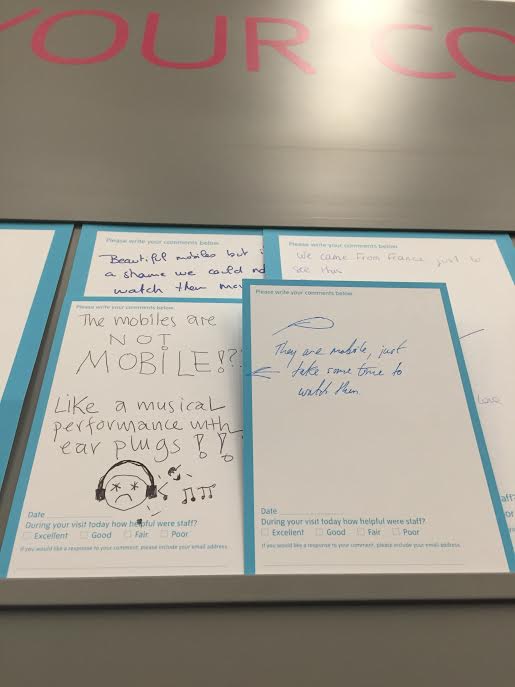 YOUR CO
Please write your comments below
Beautiful mobiles but i
a shame we could no
watch them mov
Please write your comments below
We came from France just to
see this
Please write your comments below
The mobiles are
NOT
MOBILE!??
Like a musical
performance with
ear plugs !?!
Date
During your visit today how helpful were staff?
Excellent Good Fair Poor
If you would like a response to your comment, please include your email address.
Please write your comments below
They are mobile, just
take some time to
watch them
Date
During your visit today how helpful were staff?
Excellent Good Fair Poor
If you would like a response to your comment, please include your email address.
love
aff?
or